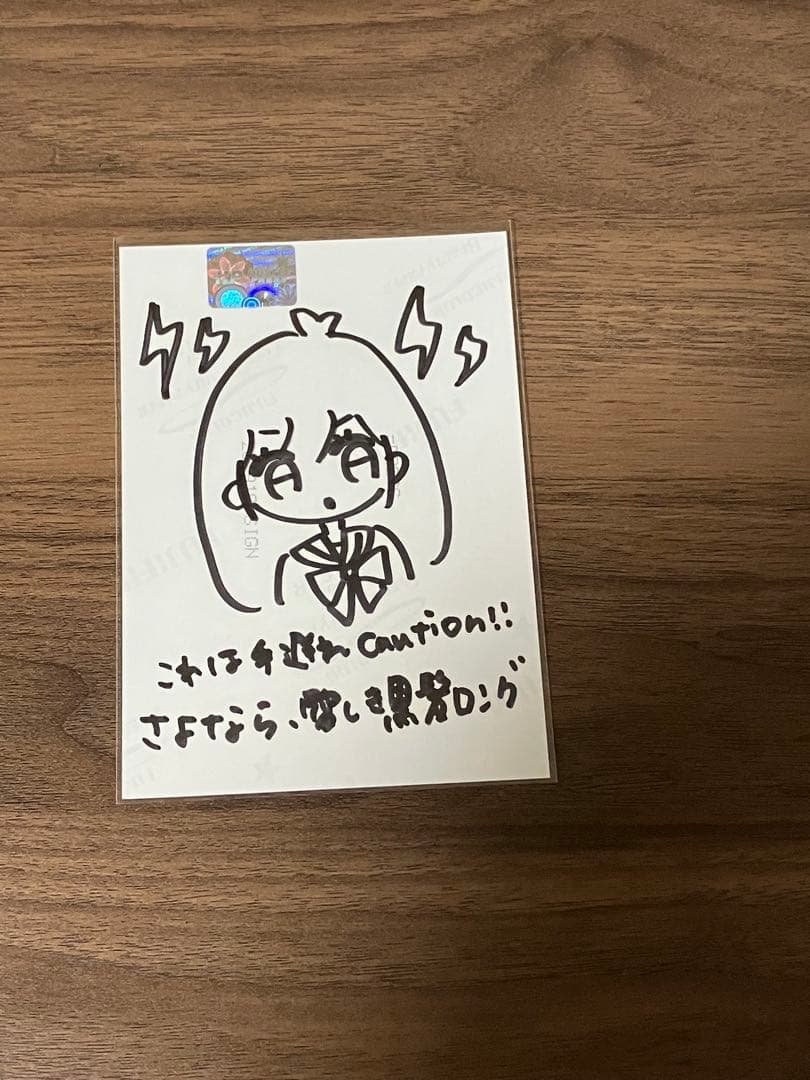 これは手遅れ caution!!
さよなら、愛しき黒髪ロング
SIGN